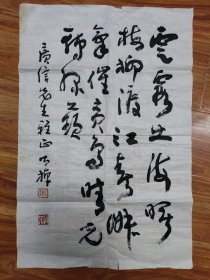 雲霞出海曙
梅柳渡江春淑
氣催黄鳥晴光
轉綠蘋
先生雅正